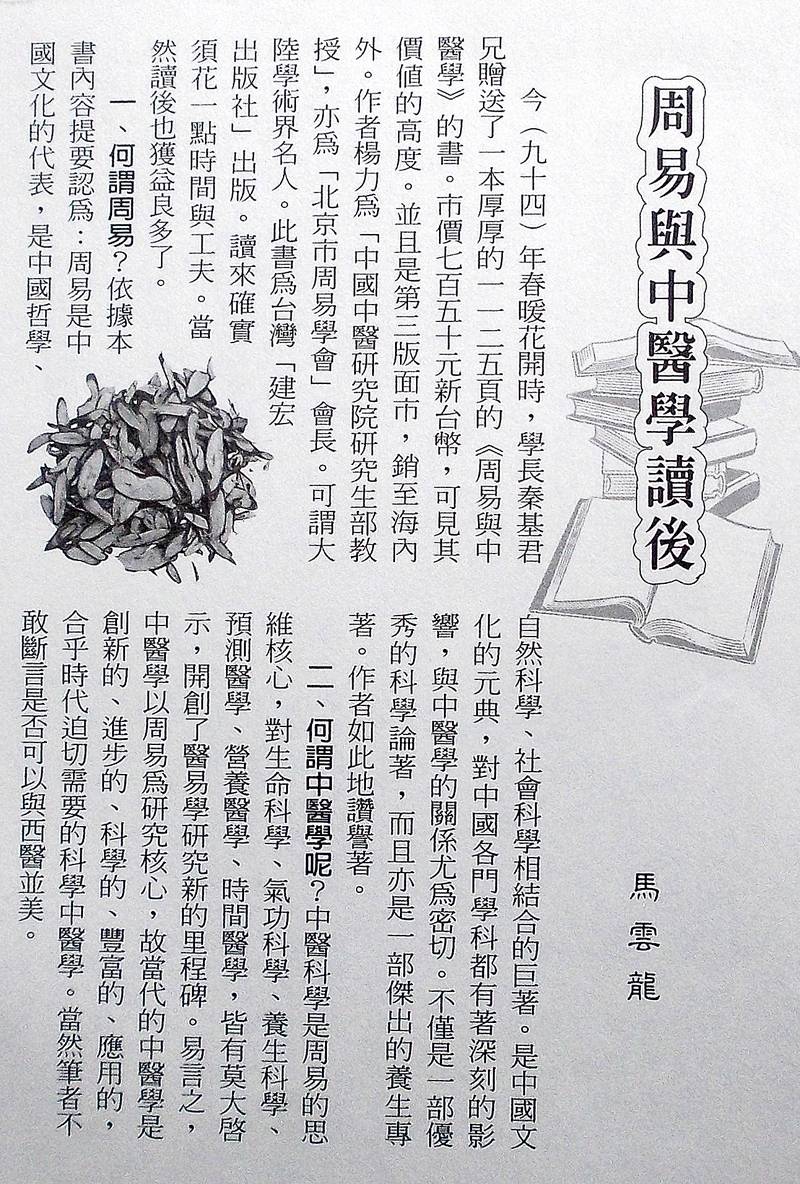 周易與中醫學讀後
馬雲龍
今（九十四）年春暖花開時，學長秦基君
兄贈送了一本厚厚的一一二五頁的《周易與中
醫學》的書。市價七百五十元新台幣，可見其
價值的高度。並且是第三版面市，銷至海內
外。作者楊力為「中國中醫研究院研究生部教
授」，亦為「北京市周易學會」會長。可謂大
陸學術界名人。此書為台灣「建宏
出版社」出版。讀來確實
須花一點時間與工夫。當
然讀後也獲益良多了。
一、何謂周易？依據本
書內容提要認為：周易是中
國文化的代表，是中國哲學、
自然科學、社會科學相結合的巨著。是中國文
化的元典，對中國各門學科都有著深刻的影
響，與中醫學的關係尤為密切。不僅是一部優
秀的科學論著，而且亦是一部傑出的養生專
著。作者如此地讚譽著。
二、何謂中醫學呢？中醫科學是周易的思
維核心，對生命科學、氣功科學、養生科學、
預測醫學、營養醫學、時間醫學，皆有莫大啓
示，開創了醫易學研究新的里程碑。易言之，
中醫學以周易為研究核心，故當代的中醫學是
創新的、進步的、科學的、豐富的、應用的，
合乎時代迫切需要的科學中醫學。當然筆者不
敢斷言是否可以與西醫並美。